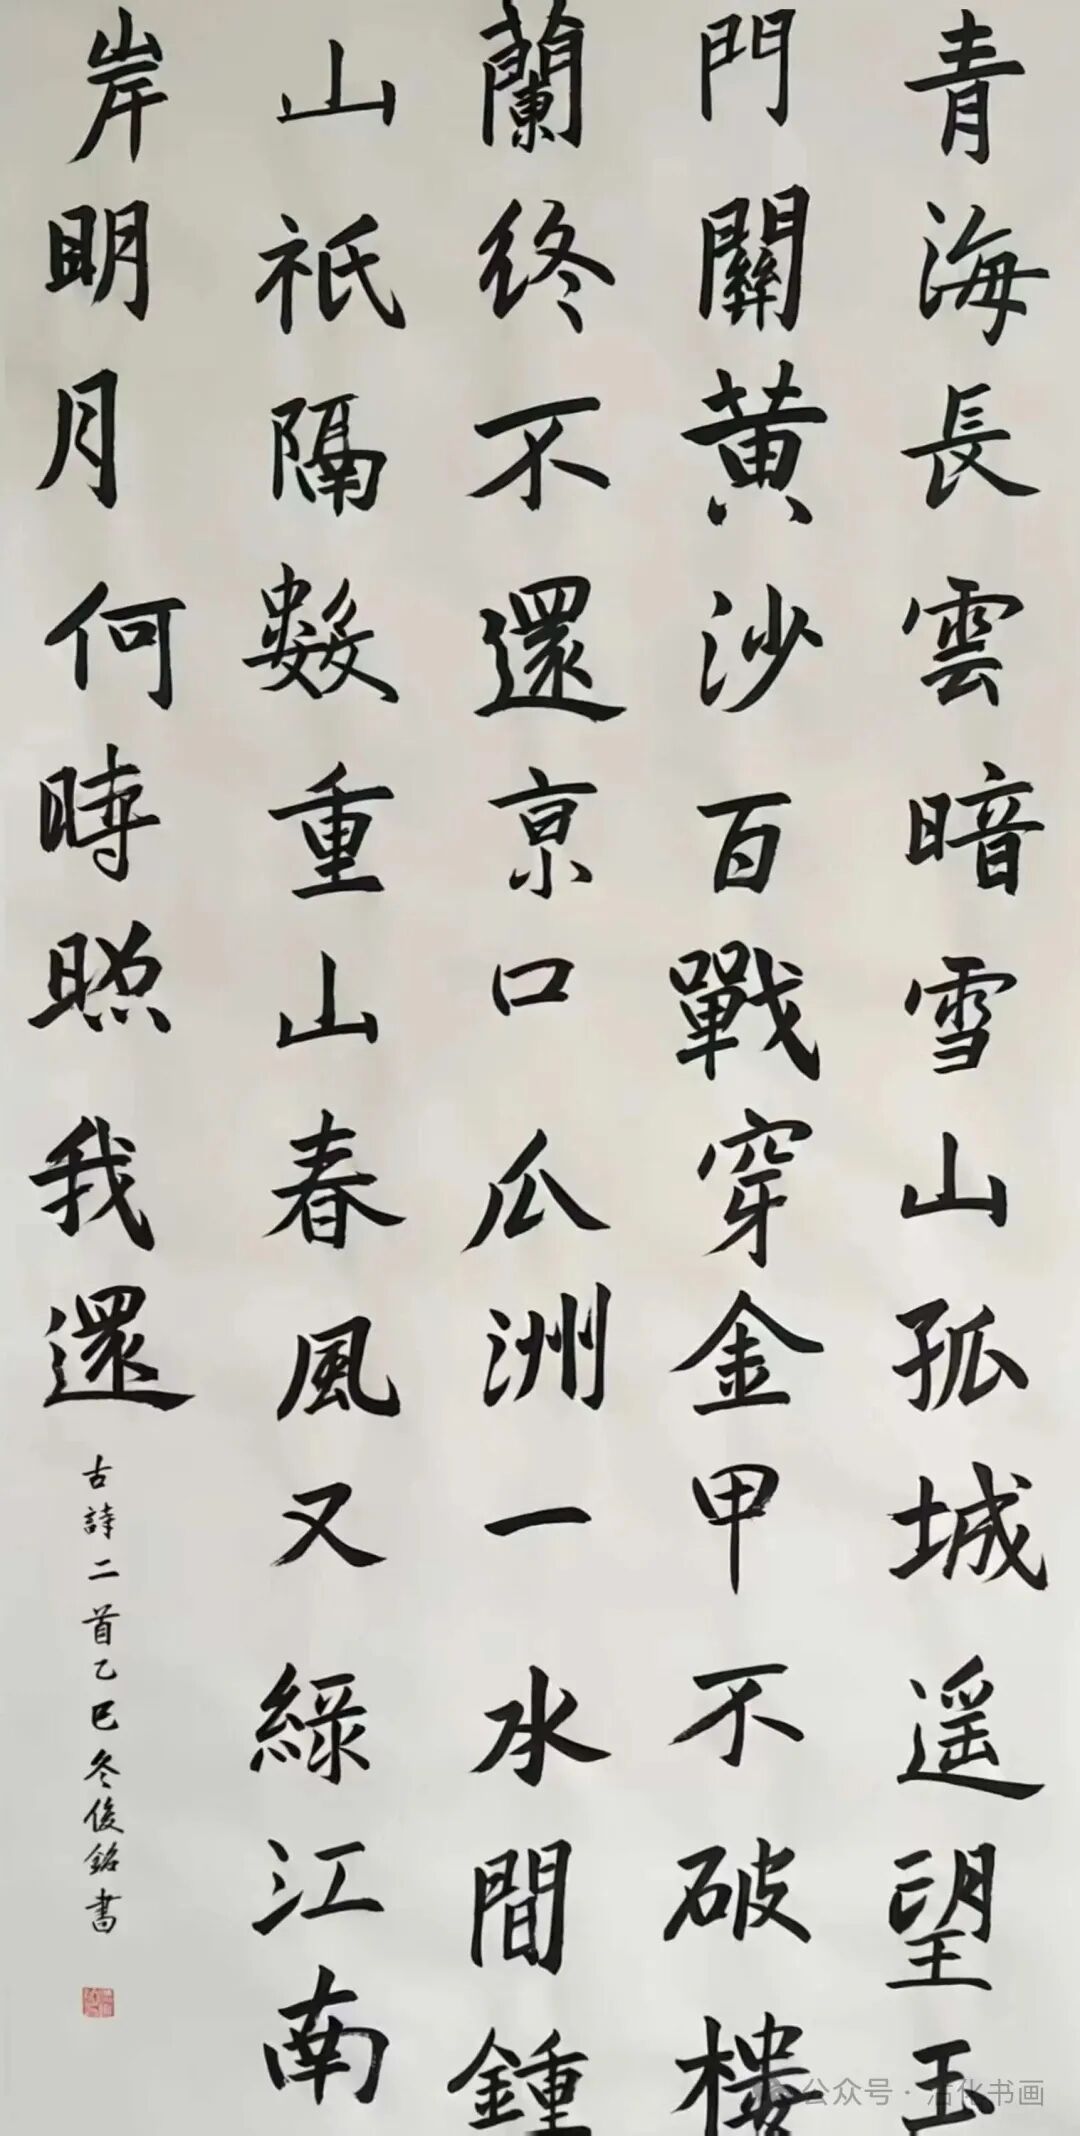 青海長雲暗雪山孤城遥望玉
門關黄沙百戰穿金甲不破樓
蘭終不還京口瓜洲一水間鍾
山祇隔數重山春風又綠江南
岸明月何時照我還
古詩二首乙巳冬俊銘書
公众号·活化书画